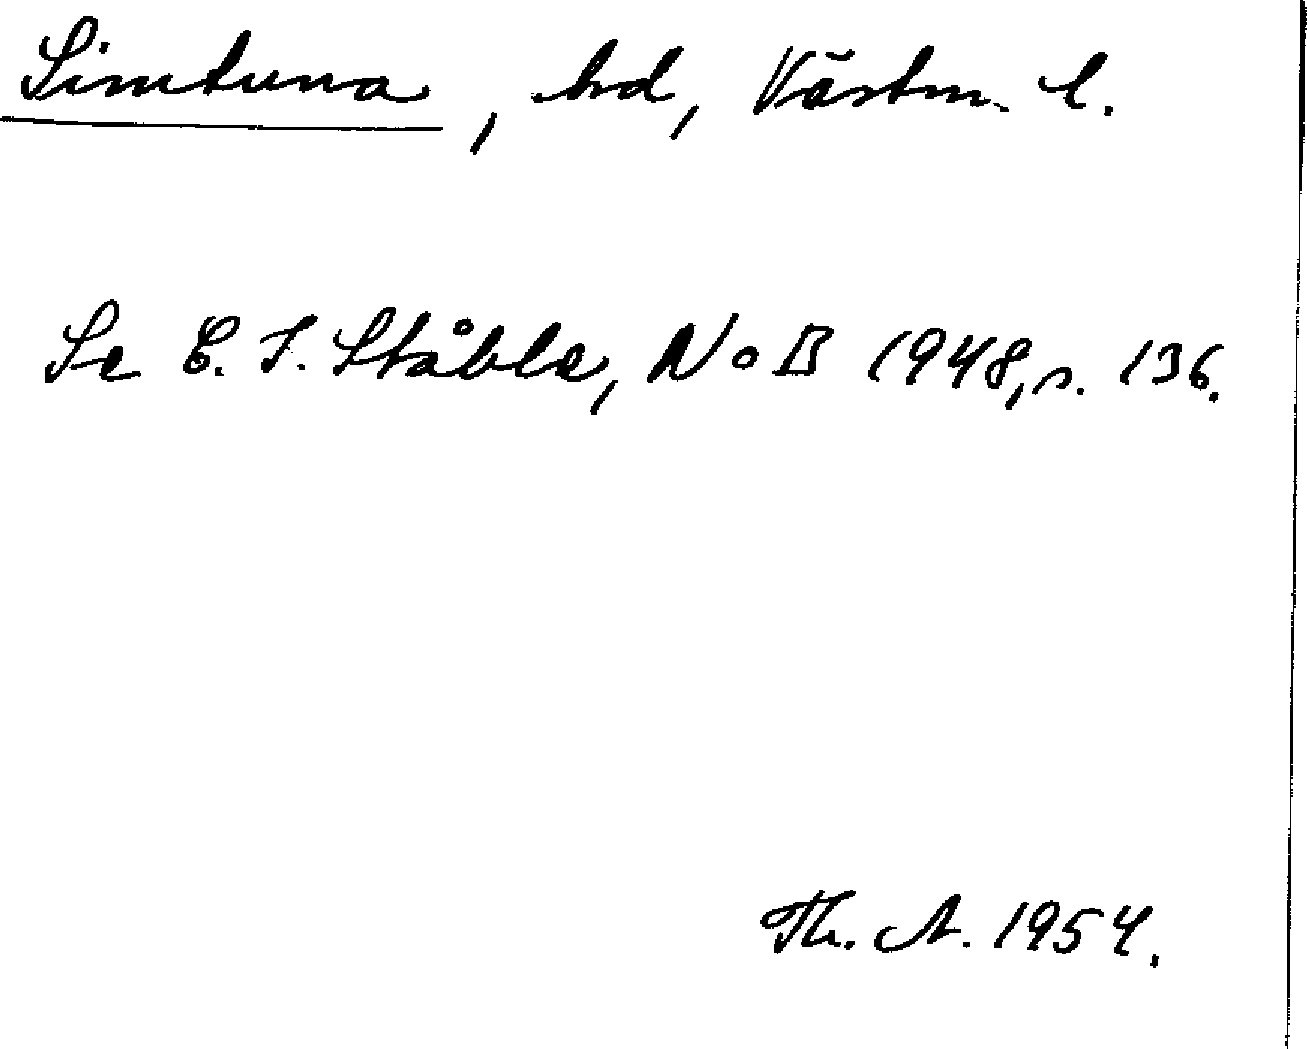 Simtuna, hd, Västm. l.
Se C. I. Ståhle, NoB 1948, s. 136.
Th. A. 1954.